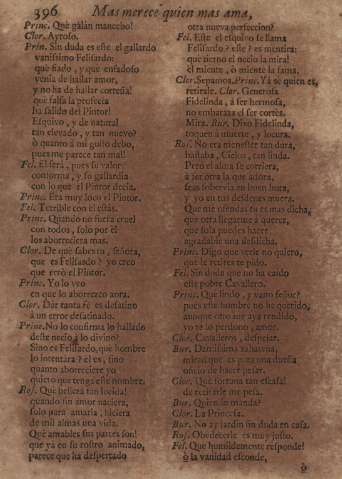 396 Mas merece quien mas ama,
Princ. Què galàn mancebo!
Clor. Ayroso.
Prin. Sin duda es este el gallardo
vanissimo Felisardo:
què fiado, y que enfadoso
venia de hallar amor,
y no ha de hallar cortesía!
que falsa la profecía
ha salido del Pintor!
Esquivo, y de natural
tan elevado, y tan nuevo?
ò quanto à mi gusto debo,
pues me parece tan mal!
Fel. Ella serà, pues su valor
conforma, y su gallardia
con lo que el Pintor decia.
Princ. Era muy loco el Pintor.
Fel. Terrible con el estàs.
Princ. Quando no fuera cruel
con todos, solo por èl
los aborreciera mas.
Clor. De què sabes tu, señora,
que es Felisardo? yo creo
que errò el Pintor.
Princ. Yo lo veo
en que lo aborrezco aora.
Clor. Dar tanta fè es desatino
à un error desatinado.
Princ. No lo confirma lo hallado
deste necio à lo divino?
Sino es Felisardo, què hombre
lo intentara? èl es, sino
quanto aborreciere yo
quiero que tenga este nombre.
Ros. Què belleza tan lucida!
quando sin amor naciera,
solo para amarla, hiciera
de mil almas una vida.
Què amables sin partes son!
que ya en su rostro animado,
parece que ha despertado
otra nueva perfeccion?
Fel. Este el esquivo se llama
Felisardo? este? es mentira:
que tierno el necio la mira!
èl miente, ò miente la fama.
Clor. Sepamos. Princ. Yà sè quien es,
retirale. Clor. Generosa
Fidelinda, à ser hermosa,
no embaraza el ser cortès.
Mira. Bur. Dixo Fidelinda,
toquen à muerte, y locura.
Ros. No era menester tan dura,
bastaba, Cielos, tan linda.
Pero el alma se corriera,
à ser otra la que adora,
seas sobervia en buen hora,
y yo en tus desdenes muera.
Que me ofendas tu es mas dicha,
que otra llegarme à querer,
que sola puedes hacer
agradable una desdicha.
Princ. Digo que verle no quiero,
que se retire te pido.
Fel. Sin duda que no ha caido
este pobre Cavallero.
Princ. Que lindo, y vano señor?
pues este hombre no he querido,
aunque otro sur aya rendido,
yo te lo perdono, amor.
Clor. Cavalleros, despejar.
Bur. Durissima zabayna,
mientras que es para una dueña
oficio de hacer pesar.
Clor. Què fortuna tan escasa!
de decirle me pesa.
Bur. Quien lo manda?
Clor. La Princesa.
Bur. No ay jardin sin duda en casa.
Ros. Obedecerle es muy justo.
Fel. Que humildemente responde!
ò la vanidad esconde,
ò